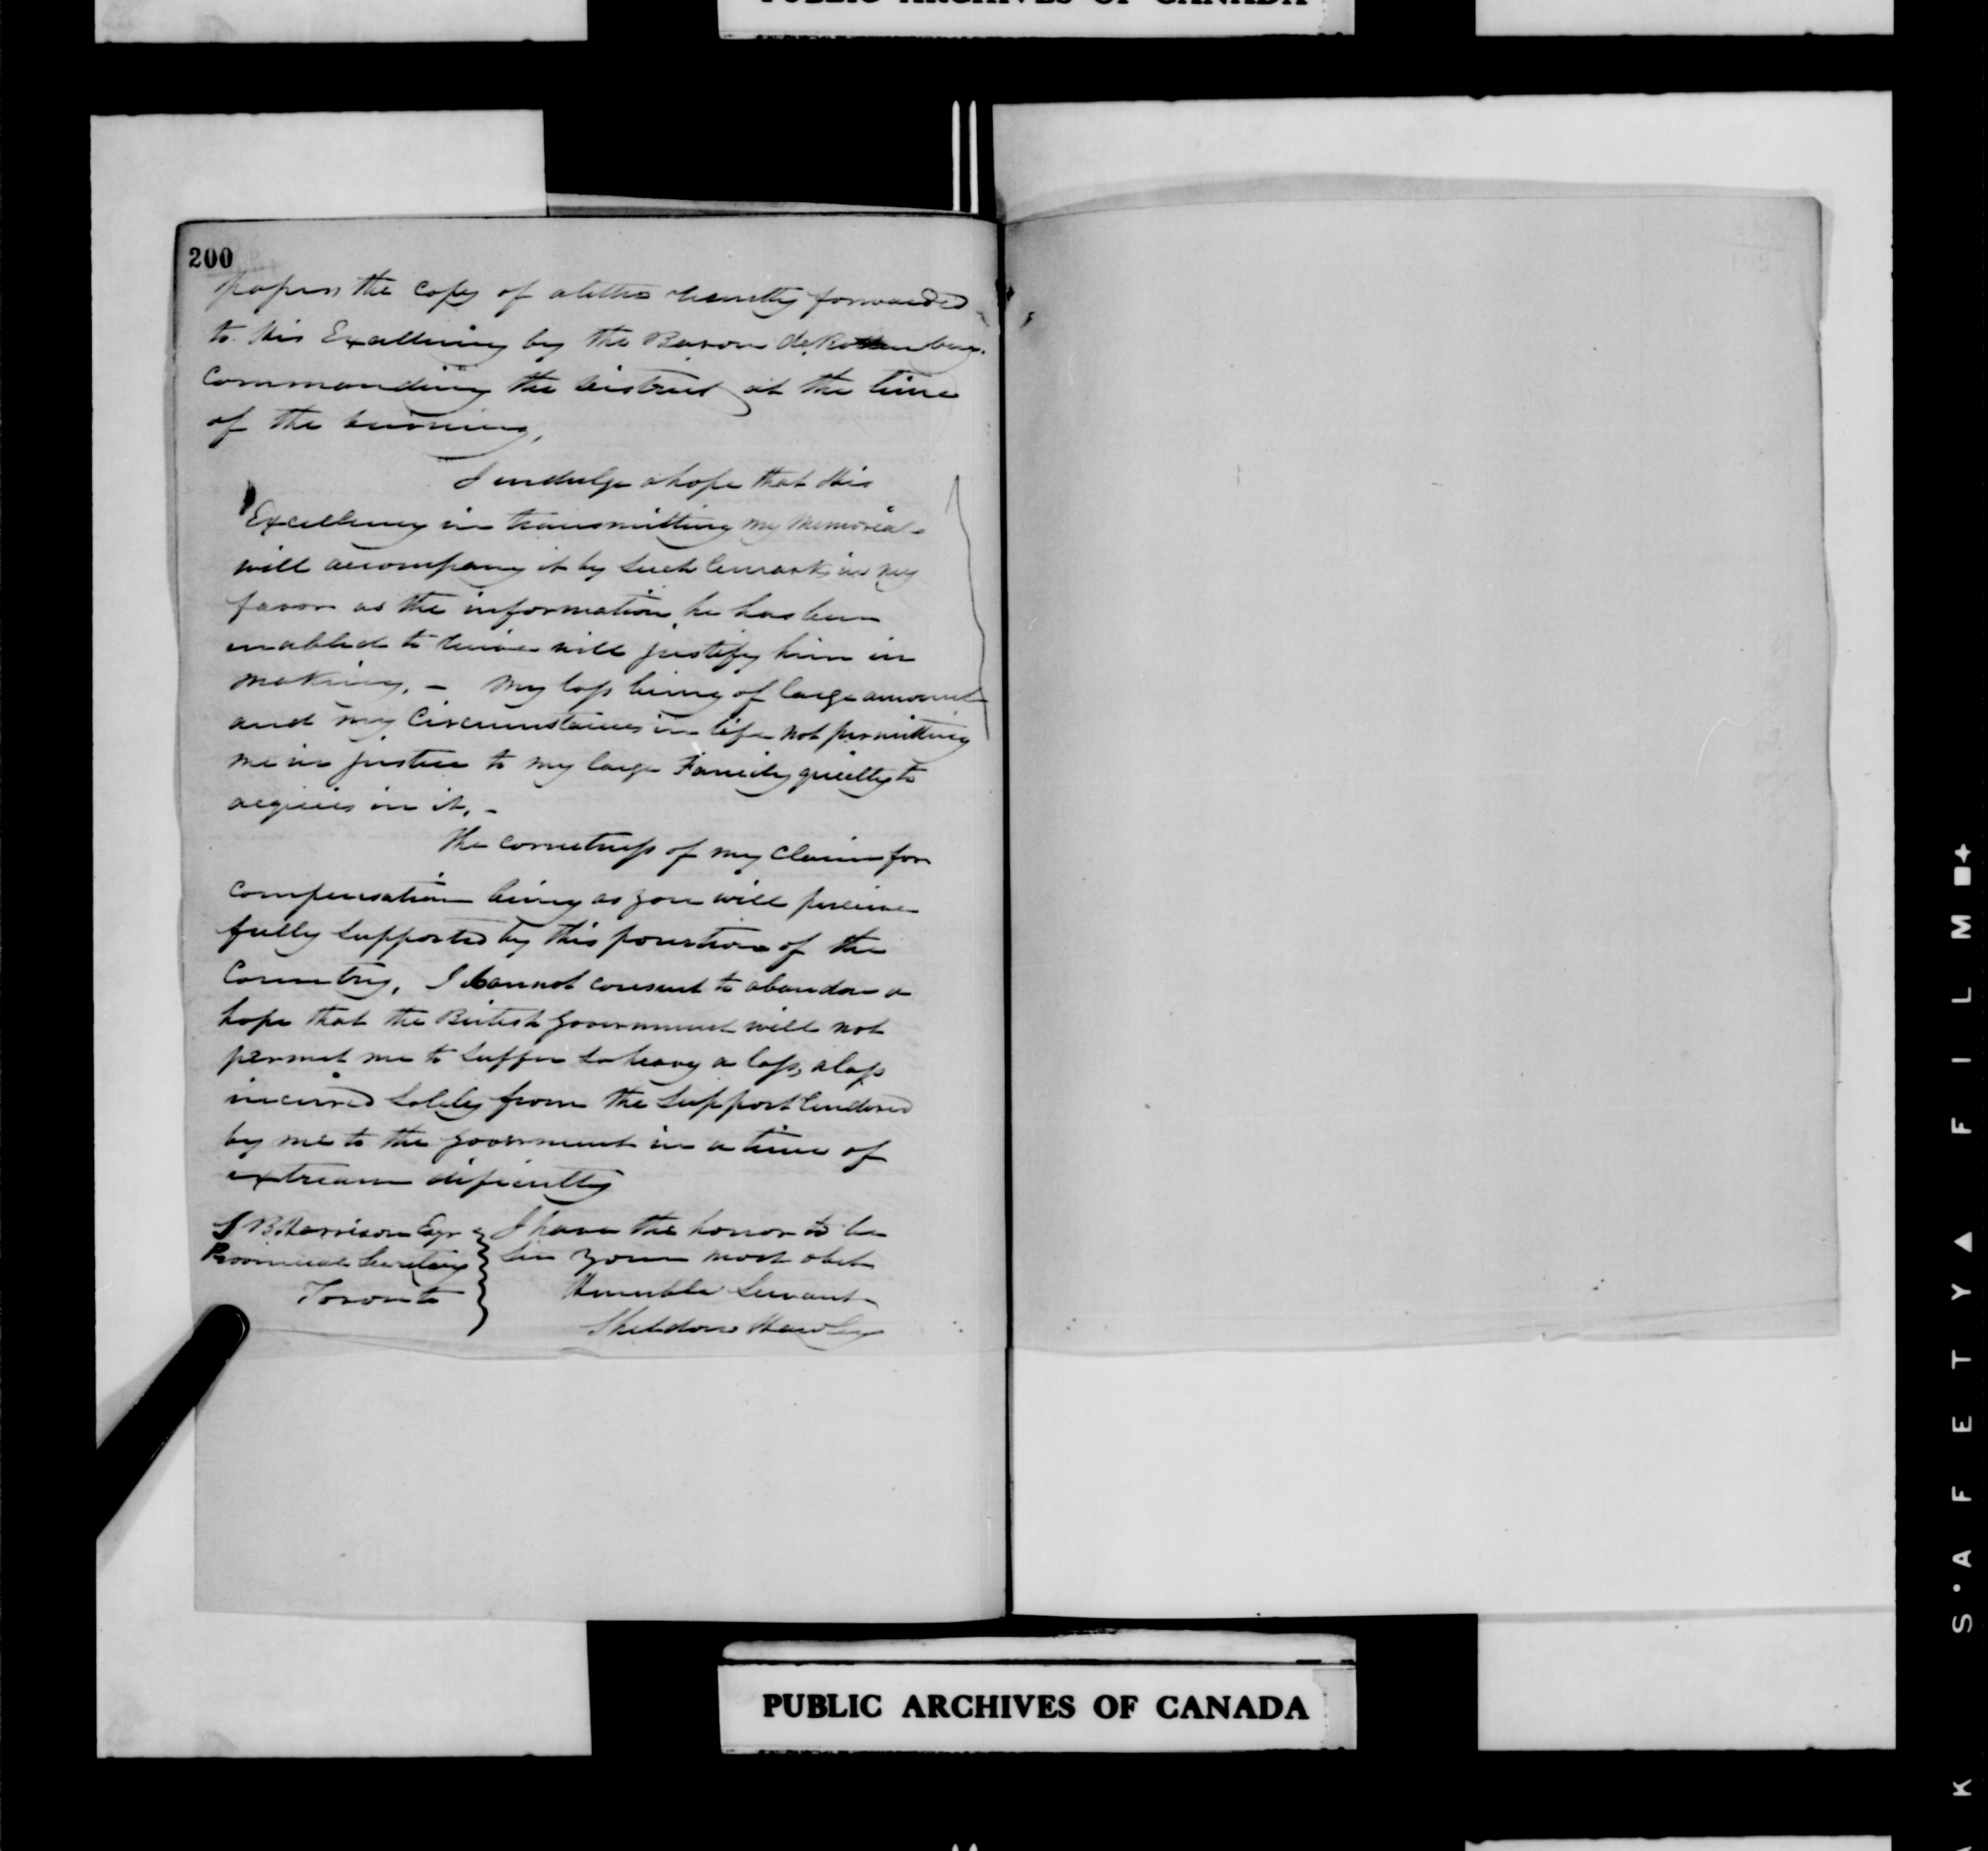 PUBLIC ARCHIVES OF CANADA
200
papers the copy of a letter recently forwarded
to His Excellency by the Baron de Rottenburg
Commanding the district at the time
of the burning,
I indulge a hope that His
Excellency in transmitting my Memorial
will accompany it by such remarks in my
favor as the information he has been
enabled to receive will justify him in
making, - My loss being of large amount
and my Circumstances in life not permitting
me in justice to my large Family quietly to
in it, -
The correctness of my Claim for
Compensation being as you will perceive
fully supported by this pourtion of the
Country, I Cannot consent to abandon a
hope that the British government will not
permit me to suffer so heavy a loss, a loss
incurred solely from the support rendered
by me to the government in a time of
extream dificulty
I have the honor to be
Sir your most obt
Humble Servant
Sheldon Hawley
S B Harrison Esqr
Provincial Secretary
Toronto
PUBLIC ARCHIVES OF CANADA
S·A F E T Y ▲ F I L M ■✦
K